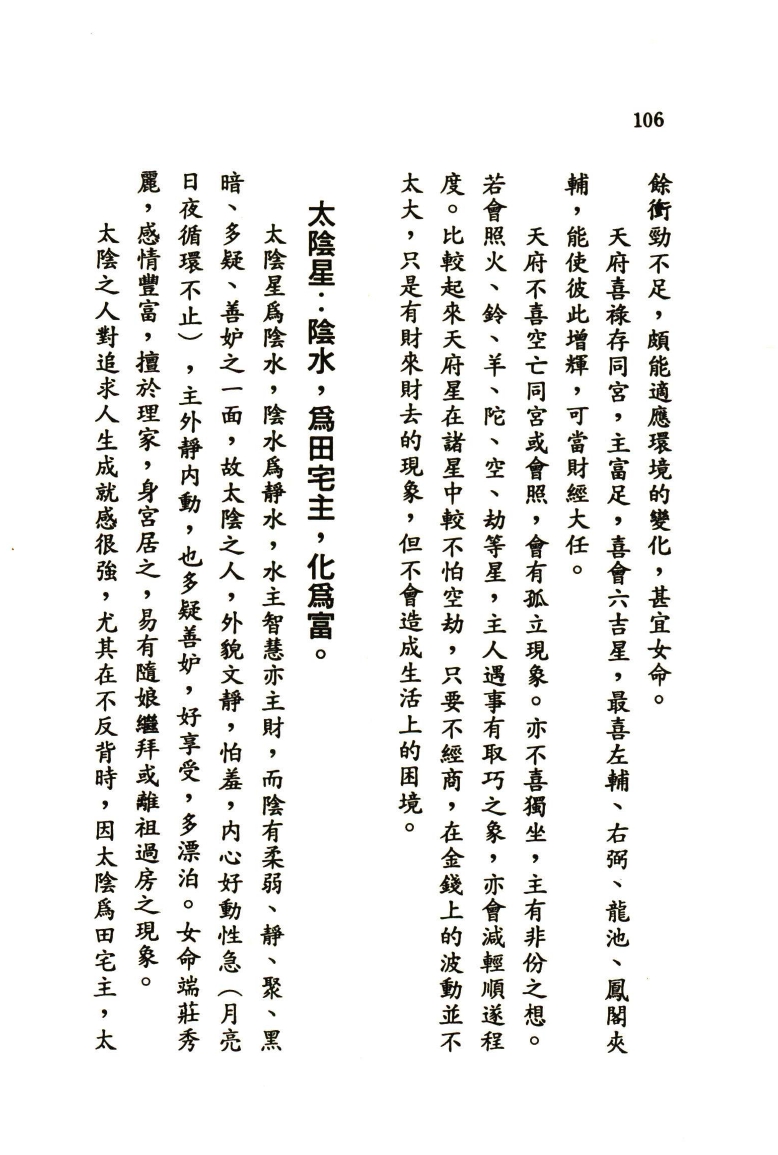 106
餘衝勁不足，頗能適應環境的變化，甚宜女命。
天府喜祿存同宮，主富足，喜會六吉星，最喜左輔、右弼、龍池、鳳閣夾
輔，能使彼此增輝，可當財經大任。
天府不喜空亡同宮或會照，會有孤立現象。亦不喜獨坐，主有非份之想。
若會照火、鈴、羊、陀、空、劫等星，主人遇事有取巧之象，亦會減輕順遂程
度。比較起來天府星在諸星中較不怕空劫，只要不經商，在金錢上的波動並不
太大，只是有財來財去的現象，但不會造成生活上的困境。
太陰星：陰水，爲田宅主，化爲富。
太陰星爲陰水，陰水爲靜水，水主智慧亦主財，而陰有柔弱、靜、聚、黑
暗、多疑、善妒之一面，故太陰之人，外貌文靜，怕羞，內心好動性急（月亮
日夜循環不止），主外靜內動，也多疑善妒，好享受，多漂泊。女命端莊秀
麗，感情豐富，擅於理家，身宮居之，易有隨娘繼拜或離祖過房之現象。
太陰之人對追求人生成就感很強，尤其在不反背時，因太陰爲田宅主，太